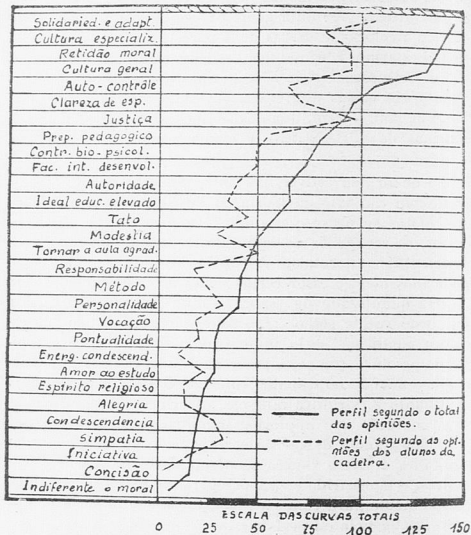 Solidaried. e adapt.
Cultura especializ.
Retidão moral
Cultura geral
Auto-contrôle
Clareza de esp.
Justiça
Prep. pedagogico
Contr. bio-psicol.
Fac. int. desenvol.
Autoridade
Ideal educ. elevado
Tato
Modestia
Tornar a aula agrad.
Responsabilidade
Método
Personalidade
Vocação
Pontualidade
Energ. condescend.
Amor ao estudo
Espírito religioso
Alegria
Condescendência
Simpatia
Iniciativa
Concisão
Indiferente o moral
Perfil segundo o total
das opiniões.
Perfil segundo as opi-
niões dos alunos da
cadeira.
ESCALA DAS CURVAS TOTAIS
0 25 50 75 100 125 150